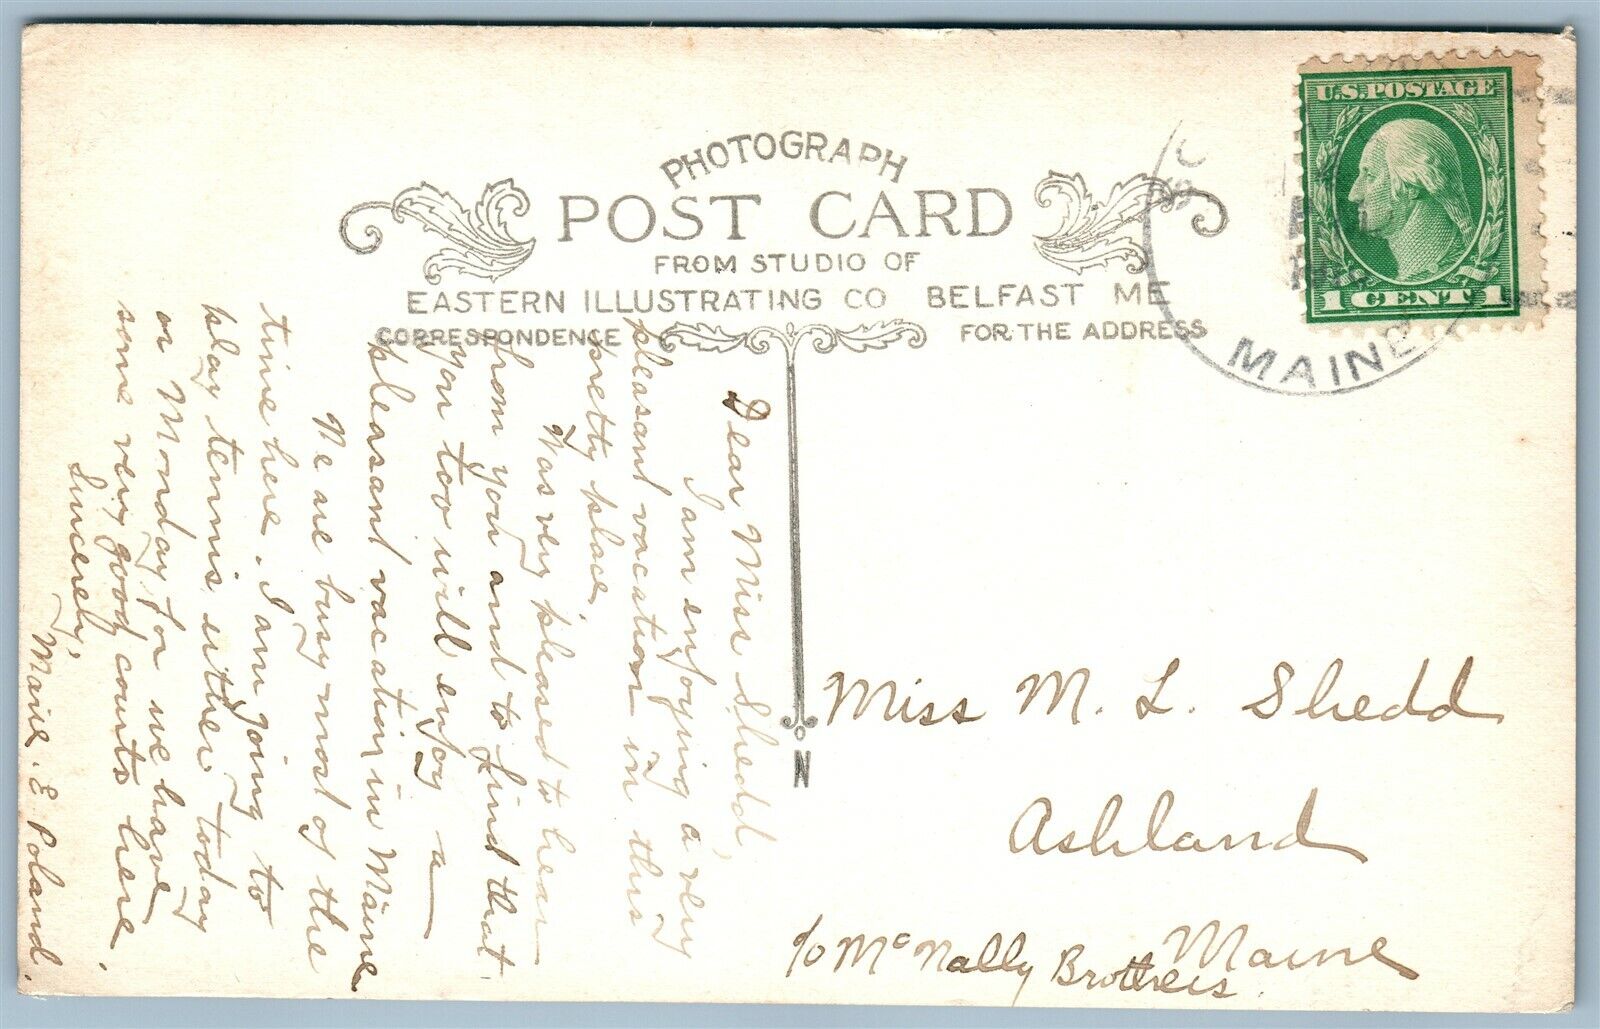 PHOTOGRAPH
POST CARD
FROM STUDIO OF
EASTERN ILLUSTRATING CO BELFAST ME
CORRESPONDENCE
FOR THE ADDRESS
U.S. POSTAGE
1 CENT 1
MAINE
Dear Miss Shedd,
I am enjoying a very
pleasant vacation in this
pretty place.
Was very pleased to hear
from you and to find that
you too will enjoy a
pleasant vacation in Maine.
We are busy most of the
time here. I am going to
play tennis either today
or Monday for we have
some very good courts here.
Sincerely,
E. Poland.
N
Miss M. L. Shedd
Ashland
Maine
c/o McNally Brothers